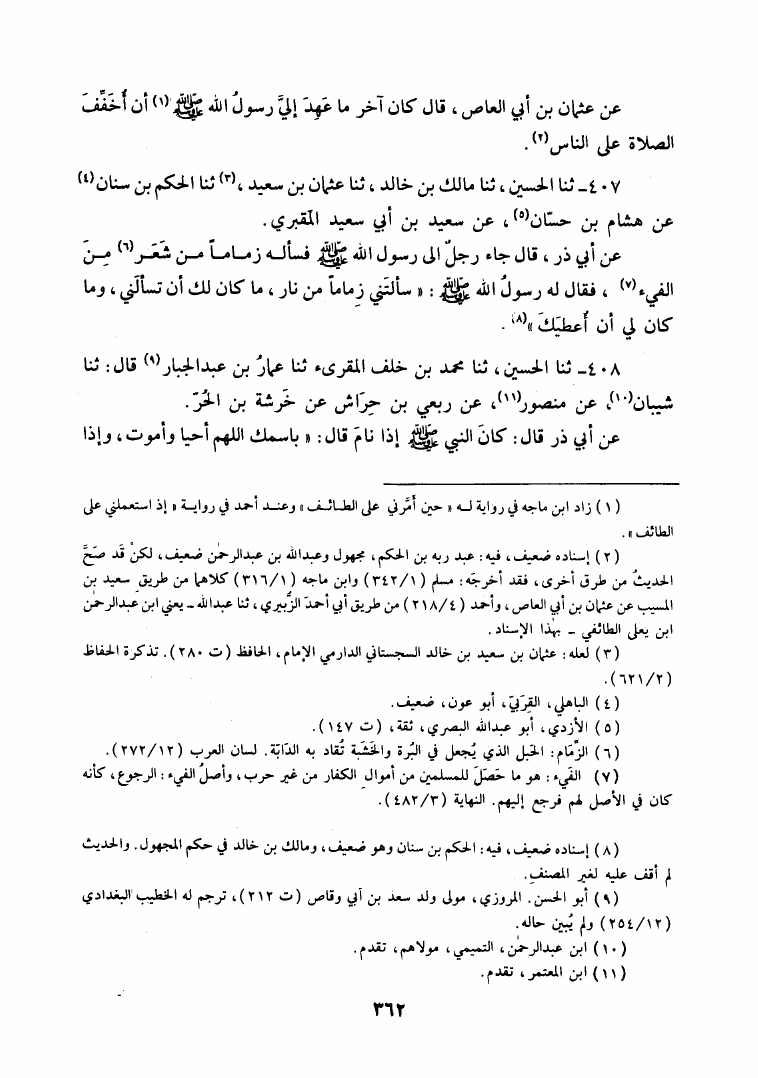 عن عثمان بن أبي العاص، قال كان آخر ما عَهِدَ إليَّ رسولُ الله ﷺ(١) أن أُخَفِّفَ
الصلاة على الناس(٢).
٤٠٧ـ ثنا الحسين، ثنا مالك بن خالد، ثنا عثمان بن سعيد،(٣) ثنا الحكم بن سنان(٤)
عن هشام بن حسّان(٥)، عن سعيد بن أبي سعيد المقبري.
عن أبي ذر، قال جاء رجلٌ الى رسول الله ﷺ فسأله زماماً من شَعَر(٦) مِنَ
الفيء(٧) ، فقال له رسولُ الله ﷺ : «سألتَني زِماماً من نار، ما كان لك أن تسألَني، وما
كان لي أن أُعطيَكَ»(٨).
٤٠٨ـ ثنا الحسين، ثنا محمد بن خلف المقرىء ثنا عمارُ بن عبدالجبار(٩) قال: ثنا
شيبان(١٠)، عن منصور(١١)، عن ربعي بن حِرَاش عن خَرشة بن الحُرّ.
عن أبي ذر قال: كانَ النبي ﷺ إذا نامَ قال: «باسمك اللهم أحيا وأموت، وإذا
(١) زاد ابن ماجه في رواية له «حين أمَّرني على الطائف» وعند أحمد في رواية «إذ استعملني على
الطائف».
(٢) إسناده ضعيف، فيه: عبد ربه بن الحكم، مجهول وعبدالله بن عبدالرحمٰن ضعيف، لكنْ قد صَحَّ
الحديثُ من طرق أخرى، فقد أخرجَه: مسلم (٣٤٢/١) وابن ماجه (٣١٦/١) كلاهما من طريق سعيد بن
المسيب عن عثمان بن أبي العاص، وأحمد (٢١٨/٤) من طريق أبي أحمدَ الزُّبيري، ثنا عبدالله ـ يعني ابن عبدالرحمٰن
ابن يعلى الطائفي ـ بهٰذا الإسناد.
(٣) لعله: عثمان بن سعيد بن خالد السجستاني الدارمي الإمام، الحافظ (ت ٢٨٠). تذكرة الحفاظ
(٦٢١/٢).
(٤) الباهلي، القِرَبيّ، أبو عون، ضعيف.
(٥) الأزدي، أبو عبدالله البصري، ثقة، (ت ١٤٧).
(٦) الزِّمَام: الحَبل الذي يُجعل في البُرة والخَشَبة تُقاد به الدَابّة. لسان العرب (٢٧٢/١٢).
(٧) الفَيء: هو ما حَصَلَ للمسلمين من أموالِ الكفار من غير حرب، وأصلُ الفيء: الرجوع، كأنه
كان في الأصل لهم فرجع إليهم. النهاية (٤٨٢/٣).
(٨) إسناده ضعيف، فيه: الحكم بن سنان وهو ضعيف، ومالك بن خالد في حكم المجهول. والحديث
لم أقف عليه لغير المصنفِ.
(٩) أبو الحسن. المروزي، مولى ولد سعد بن أبي وقاص (ت ٢١٢)، ترجم له الخطيب البغدادي
(٢٥٤/١٢) ولم يُبين حاله.
(١٠) ابن عبدالرحمٰن، التميمي، مولاهم، تقدم.
(١١) ابن المعتمر، تقدم.
٣٦٢